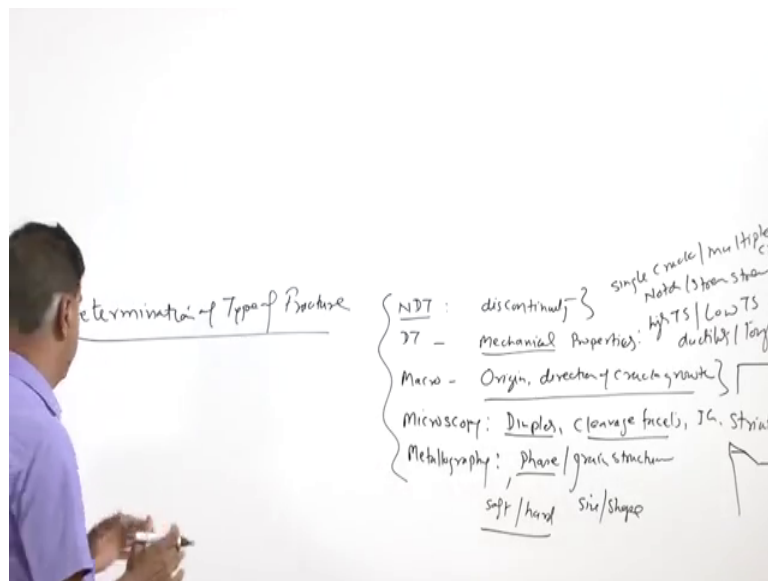 etermination of Type of Fracture
NDT : discontinuity }
single crack / multiple
Notch / stress
DT - Mechanical Properties:
high TS / Low TS
ductility / Toug
Macro - Origin, direction of crack growth }
Microscopy: Dimples, cleavage facets, IG, Stria
Metallography: phase / grain structure
soft / hard size / shape